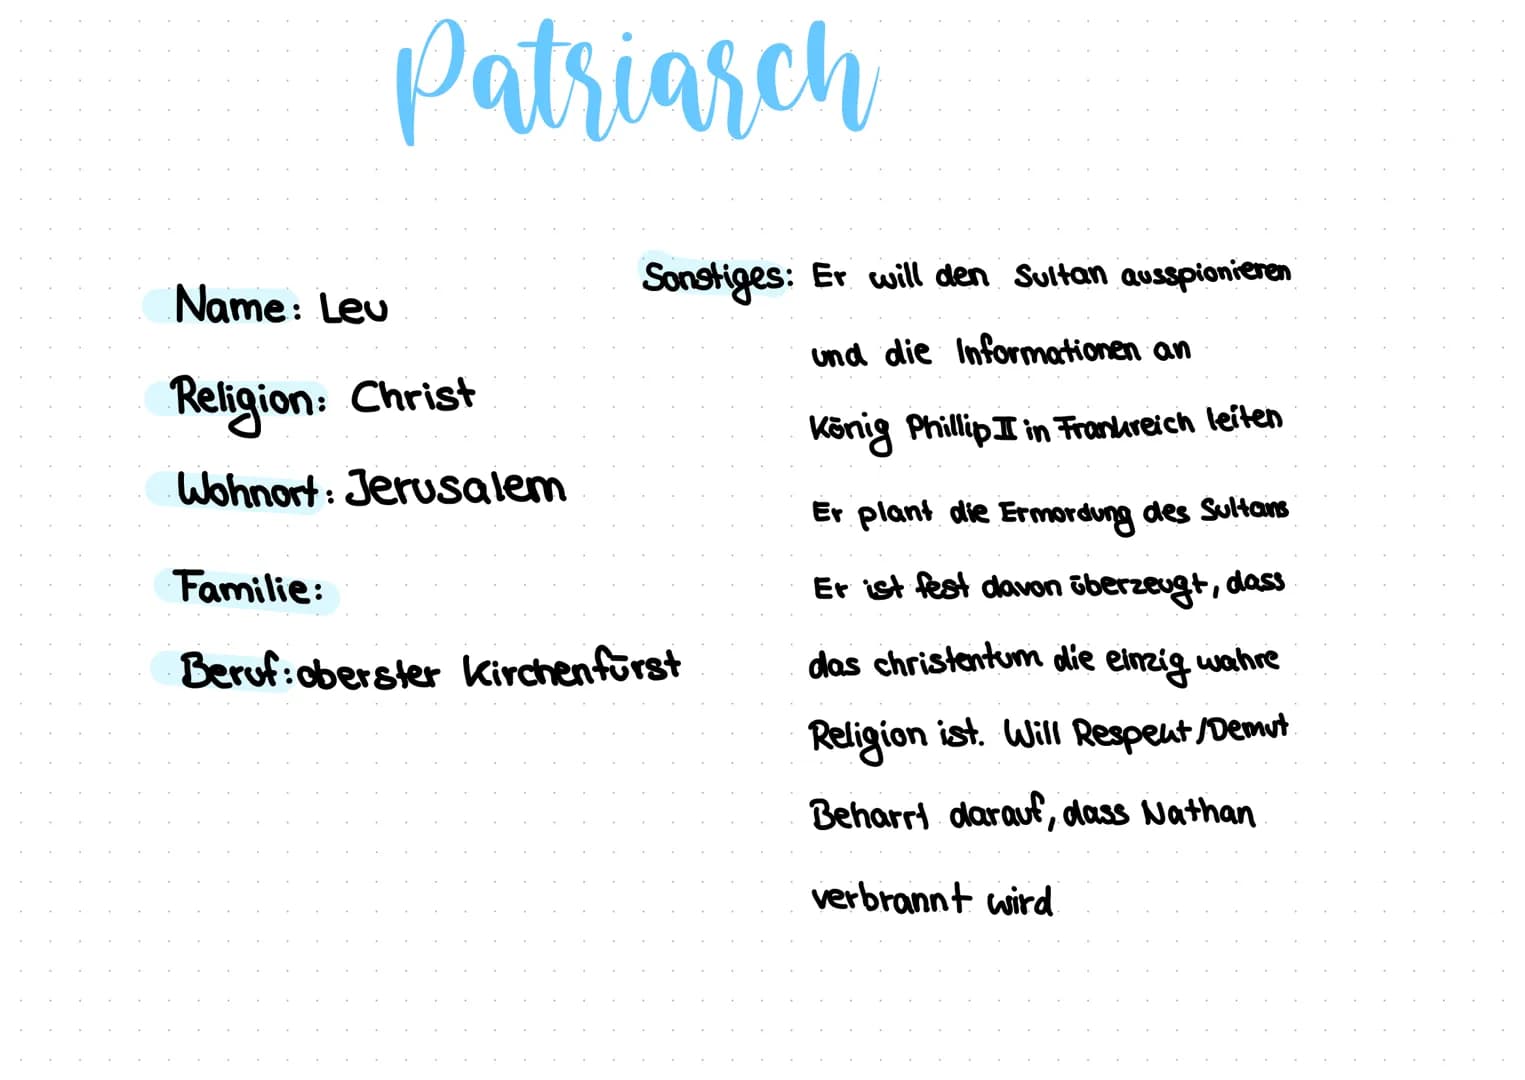 Patriarch
Name: Leu
Religion: Christ
Wohnort: Jerusalem
Familie:
Beruf: oberster Kirchenfürst
Sonstiges: Er will den Sultan ausspionieren
und die Informationen an
König Phillip II in Frankreich leiten
Er plant die Ermordung des Sultans
Er ist fest davon überzeugt, dass
das christentum die einzig wahre
Religion ist. Will Respekt/Demut
Beharrt darauf, dass Nathan
verbrannt wird